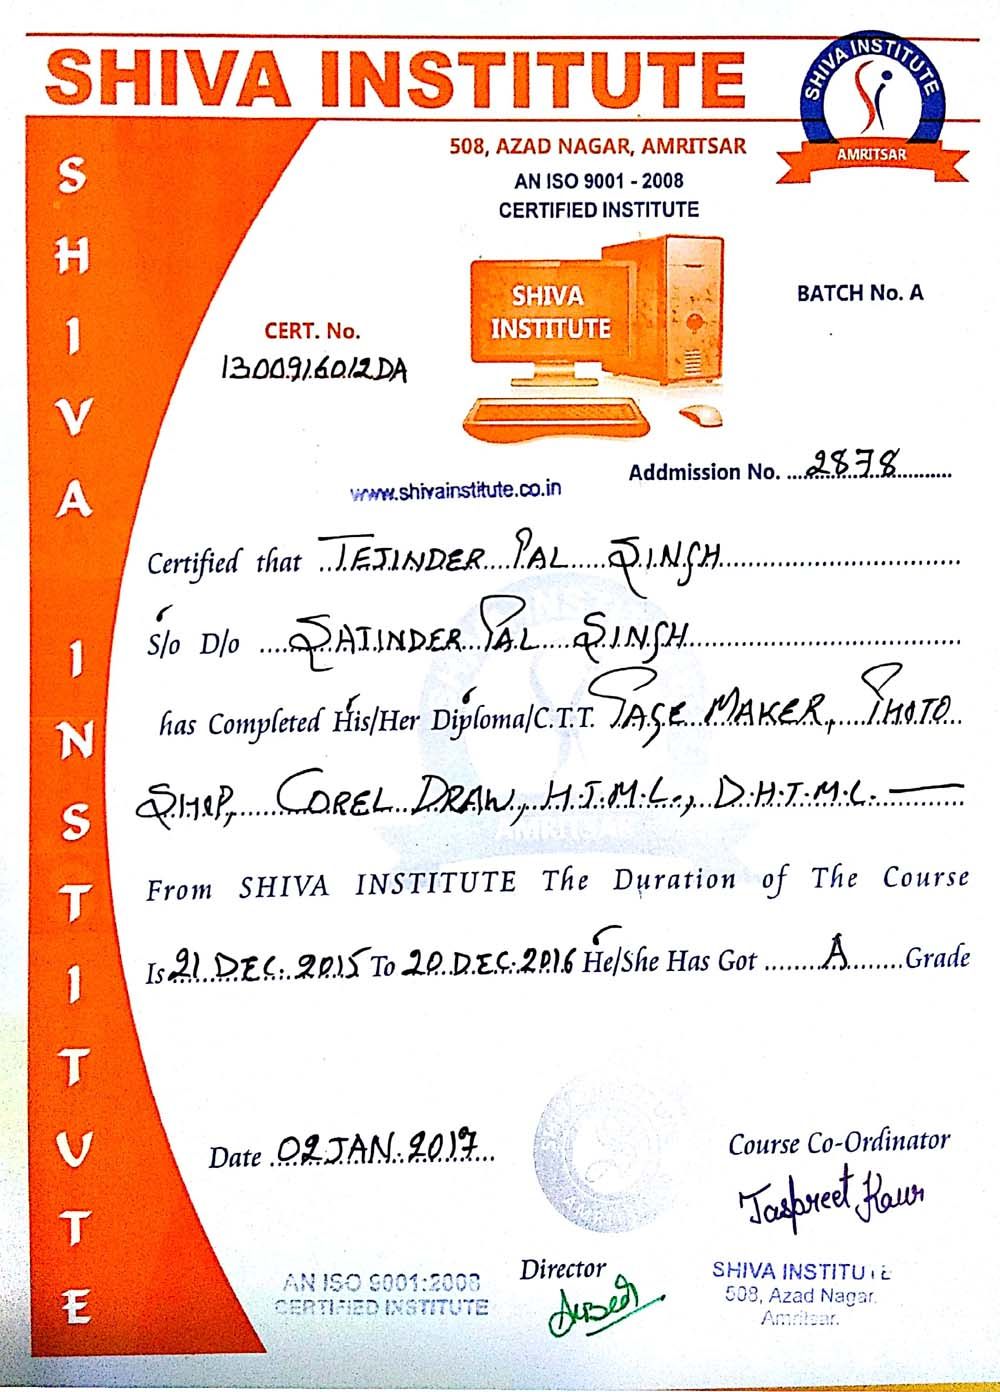 SHIVA INSTITUTE
SHIVA INSTITUTE
AMRITSAR
508, AZAD NAGAR, AMRITSAR
AN ISO 9001 - 2008
CERTIFIED INSTITUTE
SHIVA INSTITUTE
SHIVA
INSTITUTE
BATCH No. A
CERT. No.
1300916012DA
Addmission No. ....2878............
www.shivainstitute.co.in
Certified that ..TEJINDER....PAL.....SINGH....................................
S/o D/o ....SATINDER..PAL....SINGH........................................
has Completed His/Her Diploma/C.T.T. PAGE MAKER, PHOTO
SHOP, COREL DRAW, H.T.M.L., D.H.T.M.L. —
From SHIVA INSTITUTE The Duration of The Course
Is 21 DEC. 2015 To 20 DEC. 2016 He/She Has Got ........A........Grade
Date 02 JAN. 2017
Course Co-Ordinator
Jaspreet Kaur
Director
AN ISO 9001:2008
CERTIFIED INSTITUTE
SHIVA INSTITUTE
508, Azad Nagar,
Amritsar.